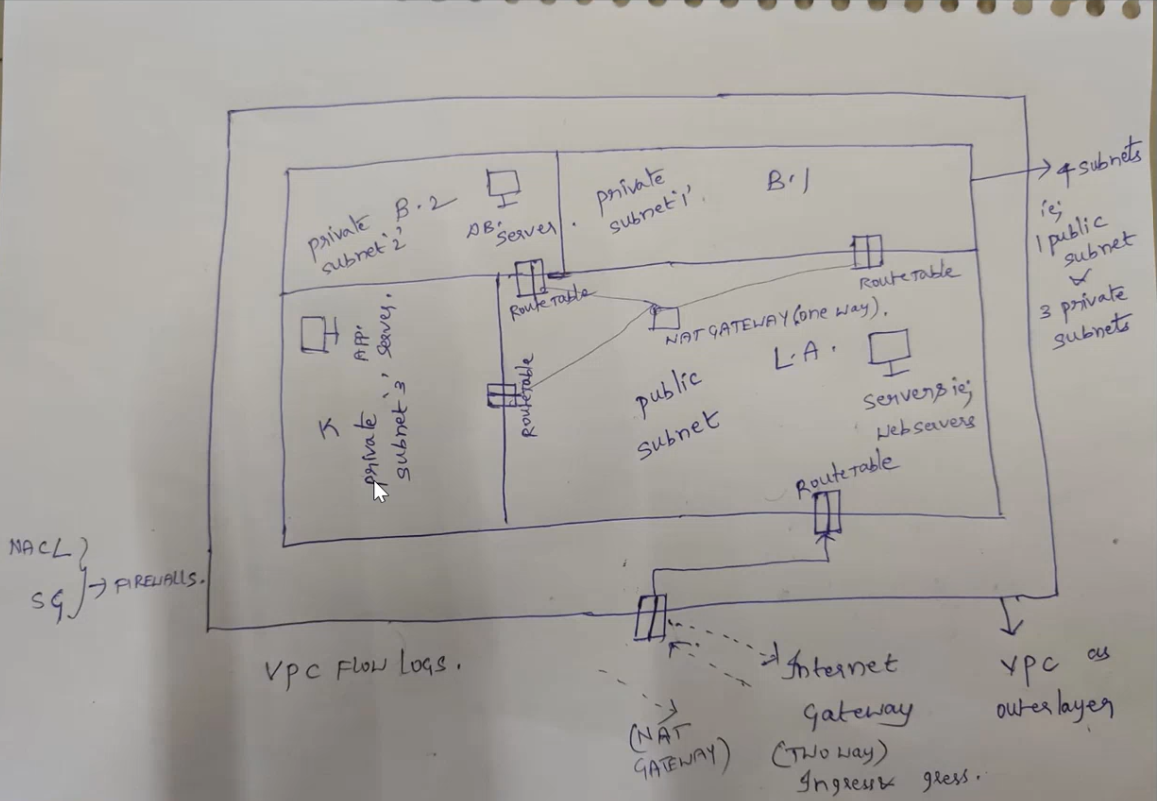 private B.2
subnet '2'
DB.
Server.
private
subnet '1'.
B.1
4 subnets
ie;
1 public
subnet
&
3 private
subnets
Route Table
Route Table
NAT GATEWAY (one way).
L.A.
APP. Server.
private
subnet '3'
Route Table
public
subnet
Servers ie;
Web servers
Route Table
NACL
SG
→ FIREWALLS.
VPC FLOW LOGS.
Internet
Gateway
(TWO way)
Ingress &
gress.
(NAT
GATEWAY)
VPC as
outer layer